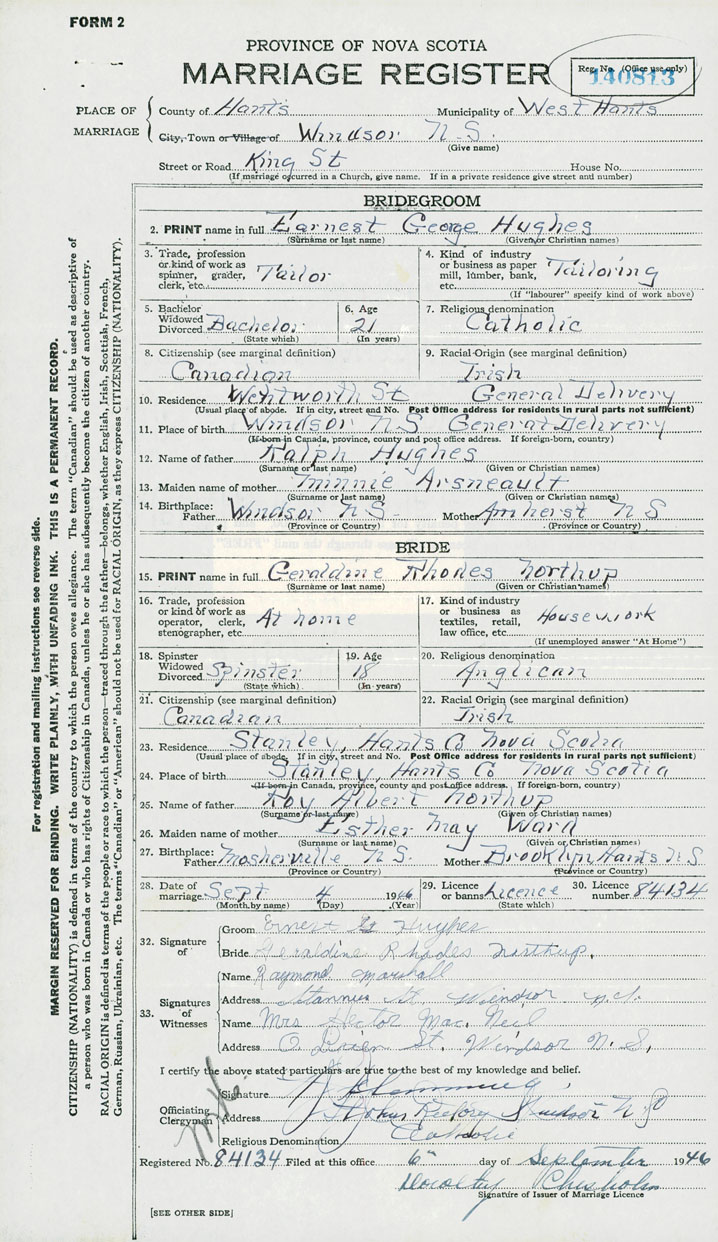 FORM 2
PROVINCE OF NOVA SCOTIA
MARRIAGE REGISTER
Reg. No. (Office use only)
140813
PLACE OF MARRIAGE
County of Hants Municipality of West Hants
City, Town or Village of Windsor N.S.
(Give name)
Street or Road King St House No.
(If marriage occurred in a Church, give name. If in a private residence give street and number)
BRIDEGROOM
2. PRINT name in full Earnest George Hughes
(Surname or last name) (Given or Christian names)
3. Trade, profession or kind of work as spinner, grader, clerk, etc. Tailor
4. Kind of industry or business as paper mill, lumber, bank, etc. Tailoring
(If "labourer" specify kind of work above)
5. Bachelor Widowed Divorced Bachelor
(State which)
6. Age 21
(In years)
7. Religious denomination Catholic
8. Citizenship (see marginal definition) Canadian
9. Racial Origin (see marginal definition) Irish
10. Residence Wentworth St General Delivery
(Usual place of abode. If in city, street and No. Post Office address for residents in rural parts not sufficient)
11. Place of birth Windsor N S General Delivery
(If born in Canada, province, county and post office address. If foreign-born, country)
12. Name of father Ralph Hughes
(Surname or last name) (Given or Christian names)
13. Maiden name of mother Minnie Arsneault
(Surname or last name) (Given or Christian names)
14. Birthplace: Father Windsor N S. Mother Amherst N S
(Province or Country) (Province or Country)
BRIDE
15. PRINT name in full Geraldine Rhodes Northup
(Surname or last name) (Given or Christian names)
16. Trade, profession or kind of work as operator, clerk, stenographer, etc. At home
17. Kind of industry or business as textiles, retail, law office, etc. Housework
(If unemployed answer "At Home")
18. Spinster Widowed Divorced Spinster
(State which)
19. Age 18
(In years)
20. Religious denomination Anglican
21. Citizenship (see marginal definition) Canadian
22. Racial Origin (see marginal definition) Irish
23. Residence Stanley, Hants Co Nova Scotia
(Usual place of abode. If in city, street and No. Post Office address for residents in rural parts not sufficient)
24. Place of birth Stanley, Hants Co Nova Scotia
(If born in Canada, province, county and post office address. If foreign-born, country)
25. Name of father Roy Albert Northup
(Surname or last name) (Given or Christian names)
26. Maiden name of mother Esther May Ward
(Surname or last name) (Given or Christian names)
27. Birthplace: Father Mosherville N S. Mother Brooklyn Hants N S
(Province or Country) (Province or Country)
28. Date of marriage Sept 4 1946
(Month by name) (Day) (Year)
29. Licence or banns Licence
(State which)
30. Licence number 84134
32. Signature of
Groom Ernest G Hughes
Bride Geraldine Rhodes Northup.
33. Signatures of Witnesses
Name Raymond Marshall
Address Stannus St. Windsor N.S.
Name Mrs Hector Mac. Neil
Address O'Brien St. Windsor N. S,
I certify the above stated particulars are true to the best of my knowledge and belief.
Officiating Clergyman
Signature
Address Windsor N S
Religious Denomination Catholic
Registered No. 84134 Filed at this office 6" day of September 1946
Dorothy Chisholm
Signature of Issuer of Marriage Licence
[SEE OTHER SIDE]
For registration and mailing instructions see reverse side.
MARGIN RESERVED FOR BINDING. WRITE PLAINLY, WITH UNFADING INK. THIS IS A PERMANENT RECORD.
CITIZENSHIP (NATIONALITY) is defined in terms of the country to which the person owes allegiance. The term "Canadian" should be used as descriptive of
a person who was born in Canada or who has rights of Citizenship in Canada, unless he or she has subsequently become the citizen of another country.
RACIAL ORIGIN is defined in terms of the people or race to which the person—traced through the father—belongs, whether English, Irish, Scottish, French,
German, Russian, Ukrainian, etc. The terms "Canadian" or "American" should not be used for RACIAL ORIGIN, as they express CITIZENSHIP (NATIONALITY).